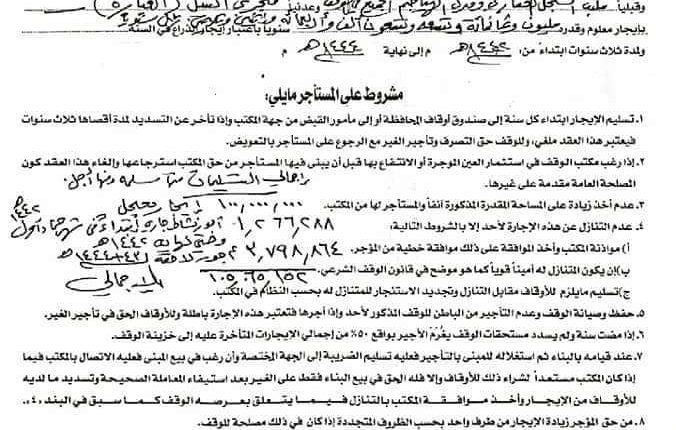 بإيجار معلوم وقدره مليون وثمانمائة وتسعة وتسعون ألف وأربعمائة سنوياً باعتبار إيجار الذراع في السنة
ولمدة ثلاث سنوات ابتداءً من: ١٤٤٢هـ م إلى نهاية ١٤٤٤هـ م
مشروط على المستأجر مايلي:
١. تسليم الإيجار ابتداء كل سنة إلى صندوق أوقاف المحافظة أو إلى مأمور القبض من جهة المكتب وإذا تأخر عن التسديد لمدة أقصاها ثلاث سنوات
فيعتبر هذا العقد ملغي، وللوقف حق التصرف وتأجير الغير مع الرجوع على المستأجر بالتعويض.
٢. إذا رغب مكتب الوقف في استثمار العين الموجرة أو الانتفاع بها قبل أن يبنى فيها المستأجر من حق المكتب استرجاعها وإلغاء هذا العقد كون
المصلحة العامة مقدمة على غيرها.
إجمالي التسليمات منها مسلمه ومنها أجل
٣. عدم أخذ زيادة على المساحة المقدرة المذكورة آنفاً والمستأجر لها من المكتب.
١٠٠,٠٠٠,٠٠٠ إيجار معجل
٤. عدم التنازل عن هذه الإجارة لأحد إلا بالشروط التالية:
١,٢٦٦,٢٨٨
أ) موازنة المكتب وأخذ الموافقة على ذلك موافقة خطية من المؤجر.
٣,٧٩٨,٨٦٤
ب) إن يكون المتنازل له أميناً قوياً كما هو موضح في قانون الوقف الشرعي.
١٠٥,٠٦٥,١٥٢ الاجمالي
ج) تسليم مايلزم للأوقاف مقابل التنازل وتجديد الاستئجار للمتنازل له بحسب النظام في المكتب.
٥. حفظ وصيانة الوقف وعدم التأجير من الباطن للوقف المذكور لأحد وإذا أجرها فتعتبر هذه الإجارة باطلة وللأوقاف الحق في تأجير الغير.
٦. إذا مضت سنة ولم يسدد مستحقات الوقف يغرم الأجير بواقع ٥٠٪ من إجمالي الإيجارات المتأخرة عليه إلى خزينة الوقف.
٧. عند قيامه بالبناء ثم استغلاله للمبنى بالتأجير فعليه تسليم الضريبة إلى الجهة المختصة وأن رغب في بيع المبنى فعليه الاتصال بالمكتب فيما
إذا كان المكتب مستعداً لشراء ذلك للأوقاف وإلا فله الحق في بيع البناء فقط على الغير بعد استيفاء المعاملة الصحيحة وتسديد ما لديه
للأوقاف من الإيجار وأخذ موافقة المكتب بالتنازل فيما يتعلق بعرصه الوقف كما سبق في البند ٤.
٨. من حق المؤجر زيادة الإيجار من طرف واحد بحسب الظروف المتجددة إذا كان في ذلك مصلحة للوقف.